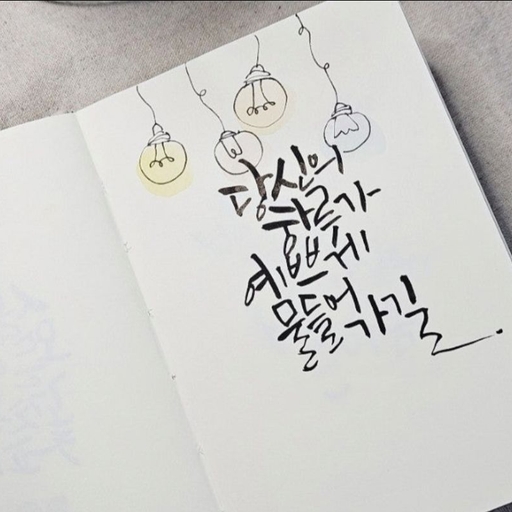 당신의
하루가
예쁘게
물들어 가길.